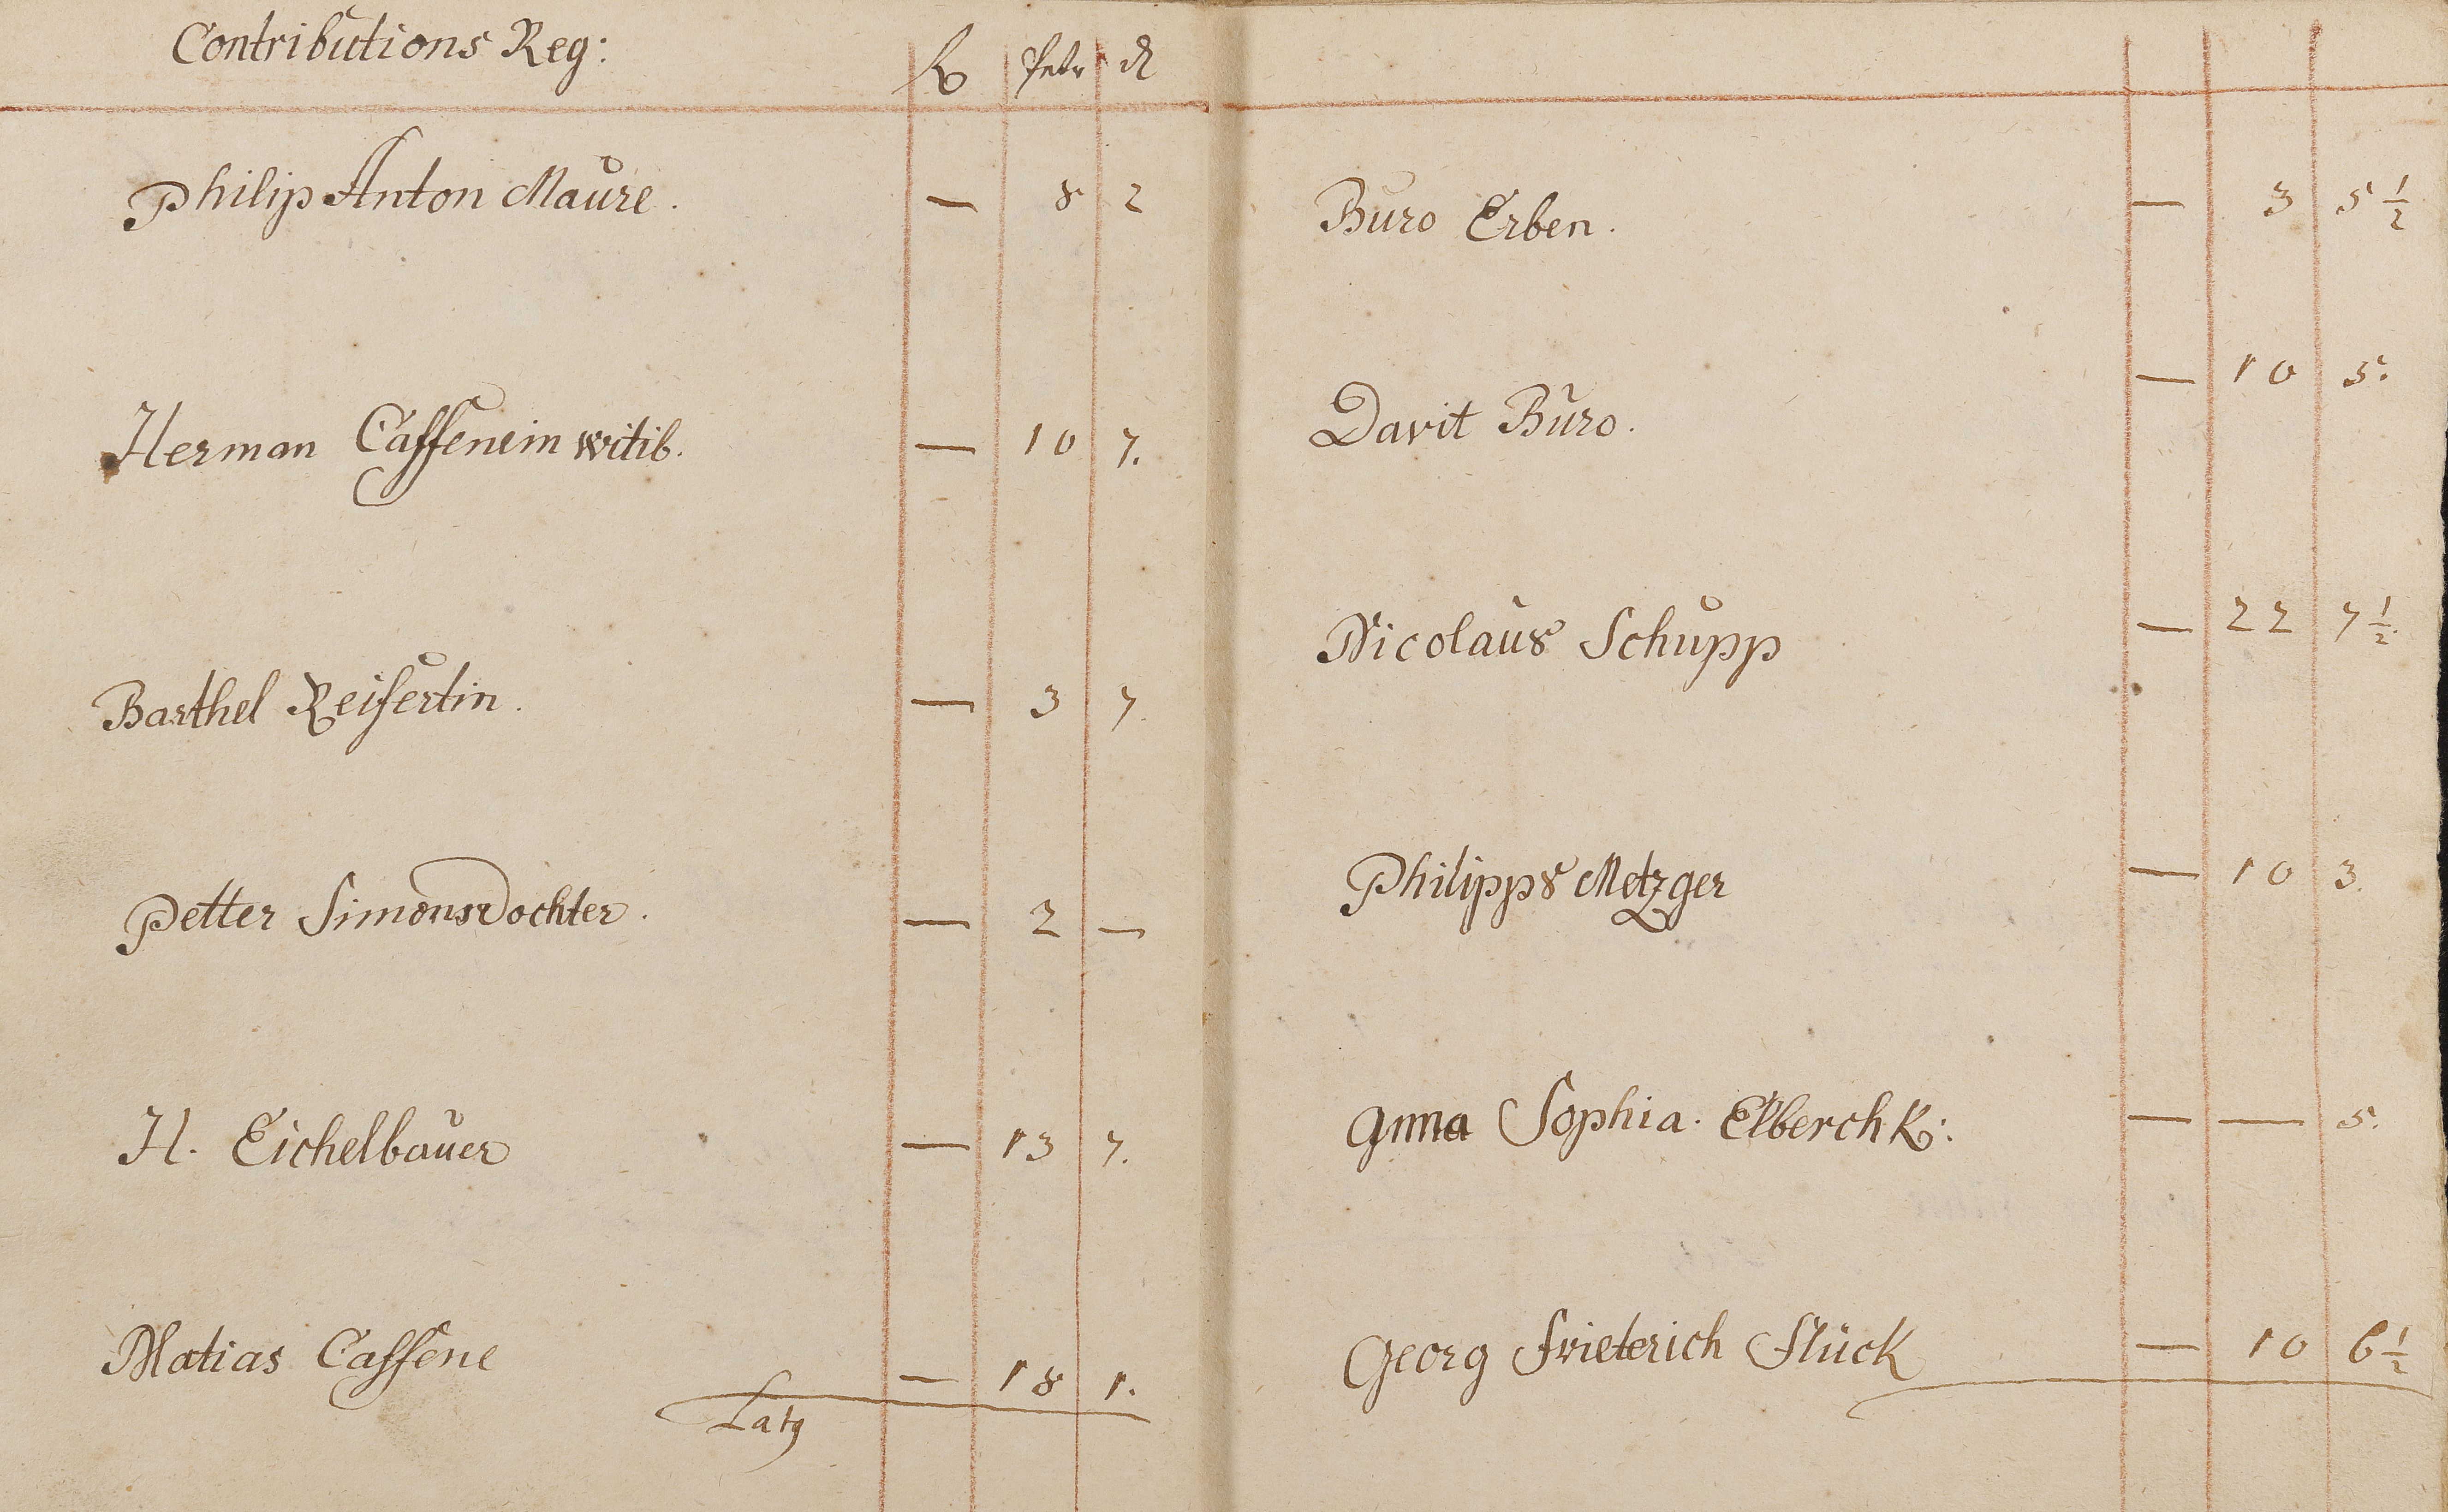 Contributions Reg:
Philip Anton Maure. — 8 2
Herman Cassenein witib. — 10 7.
Barthel Reisertin. — 3 7.
Petter Simons Dochter. — 2 —
H. Eichelbauer — 13 7.
Matias Cassene — 18 1.
Latg
Buro Erben. — 3 5 1/2
Davit Buro. — 10 5.
Nicolaus Schupp — 22 7 1/2.
Philipps Metzger — 10 3.
Anna Sophia. Elberch K: — — 5.
Georg Frieterich Flück — 10 6 1/2